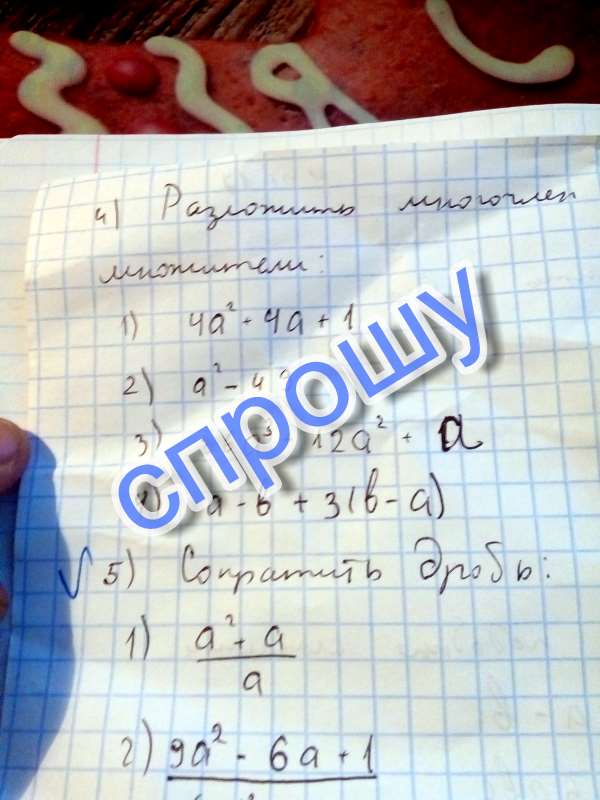 4) Разложить многочлен
множители:
1) 4a² - 4a + 1
2) a² - 4
3) 12a² + a
a - в + 3(в - a)
спрошу
5) Сократить дробь:
1) a² + a
a
2) 9a² - 6a + 1